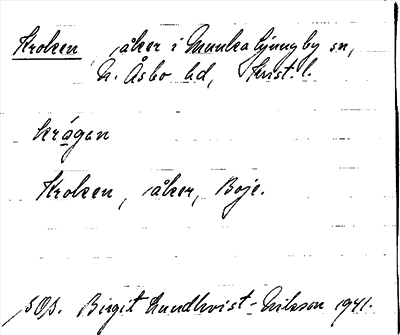 Kroken, åker i Munka Ljungby sn,
N. Åsbo hd, Krist. l.
krågan
Kroken, åker, Boje.
SOS. Birgit Lundkvist-Nilsson 1941.